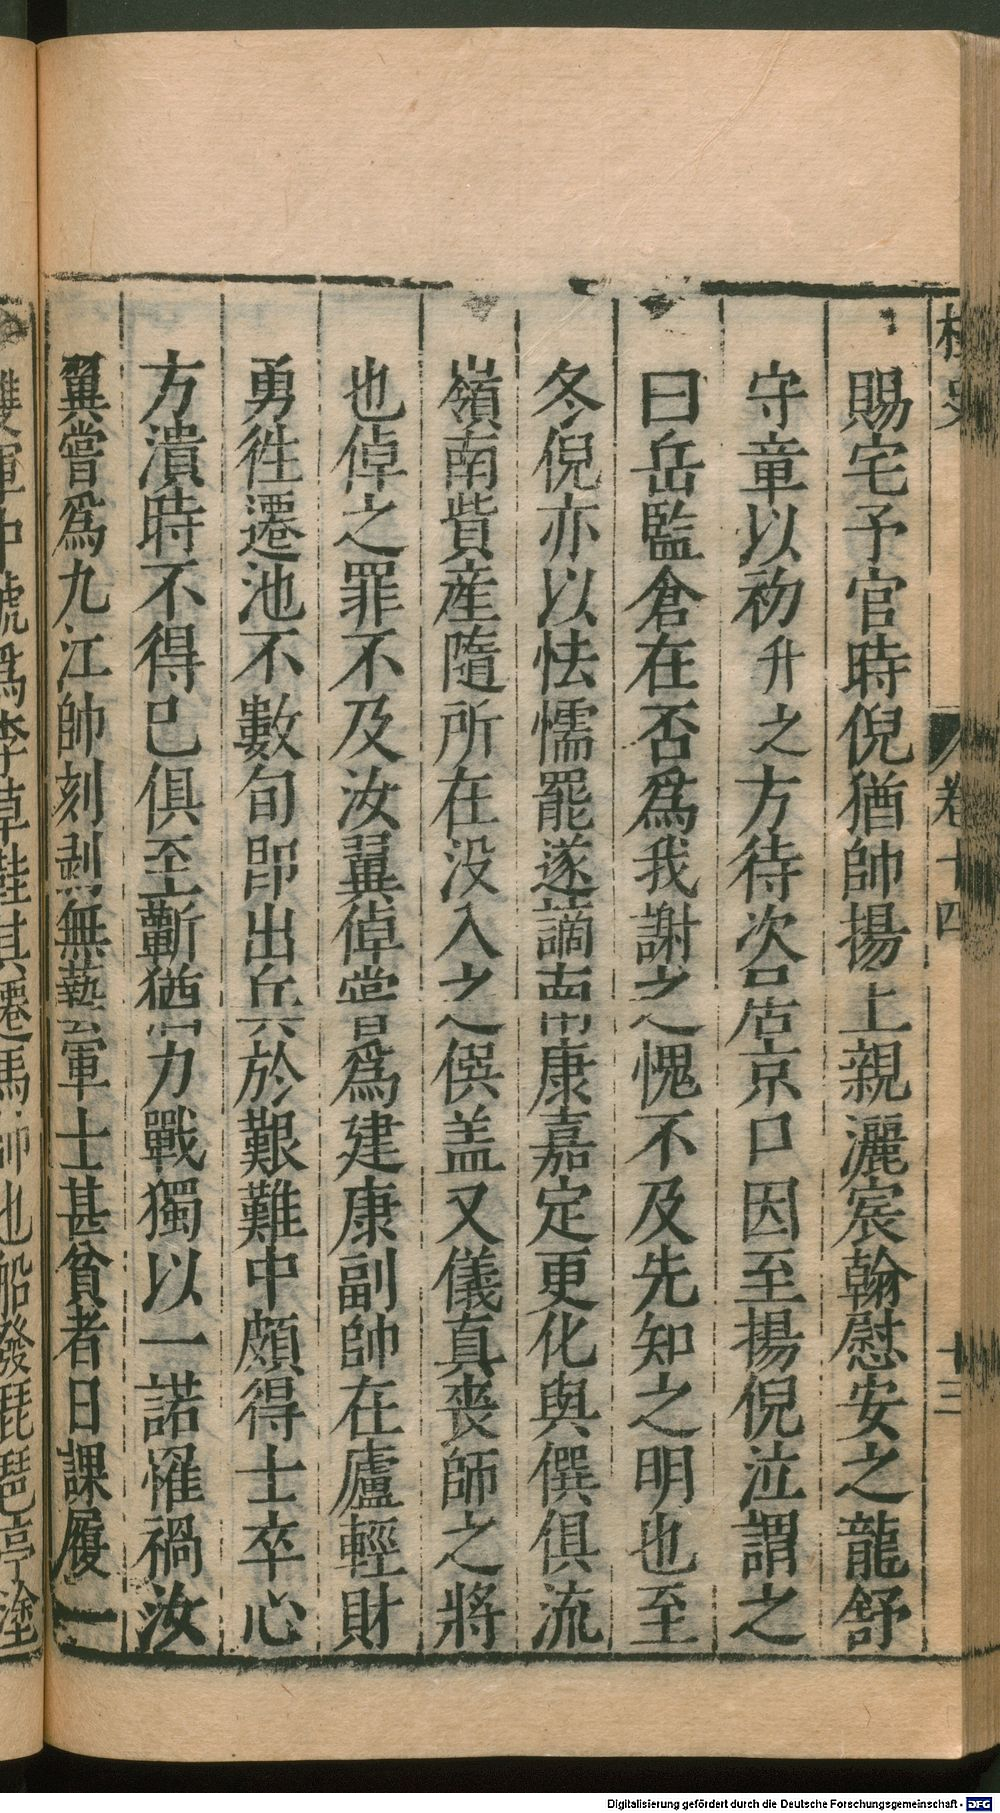 桯史
卷十四
十三
賜宅予官時倪猶帥揚上親灑宸翰慰安之龍舒
守章以初升之方待次居京口因至揚倪泣謂之
曰岳監倉在否爲我謝之愧不及先知之明也至
冬倪亦以怯懦罷遂謫南康嘉定更化與僎俱流
嶺南貲産隨所在没入之僎盖又儀真喪師之將
也倬之罪不及汝翼倬嘗爲建康副帥在廬輕財
勇徃遷池不數旬卽出兵於艱難中頗得士卒心
方潰時不得已俱至蘄猶力戰獨以一諾罹禍汝
翼嘗爲九江帥刻剥無藝軍士甚貧者日課履一
雙軍中號爲李草鞋其遷馬帥也船發琵琶亭塗
Digitalisierung gefördert durch die Deutsche Forschungsgemeinschaft - DFG